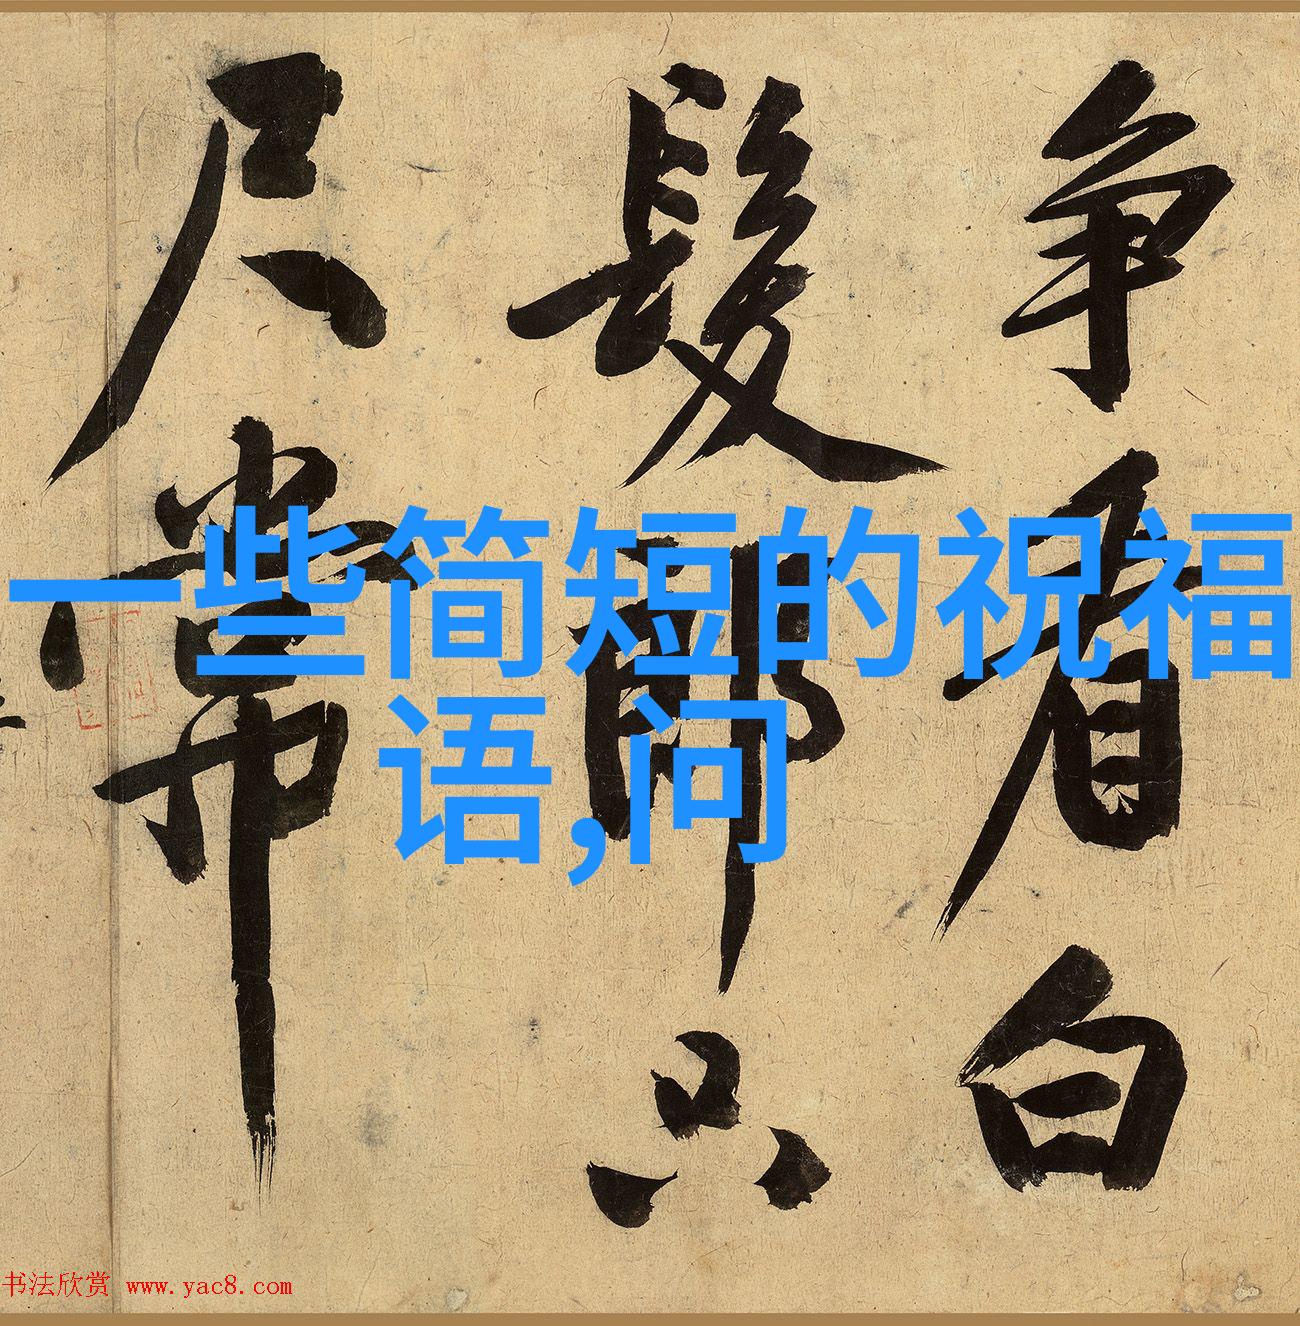 争看白
髮郎只
尺常
一些简短的祝福
语,问
书法欣赏 www.yac8.com